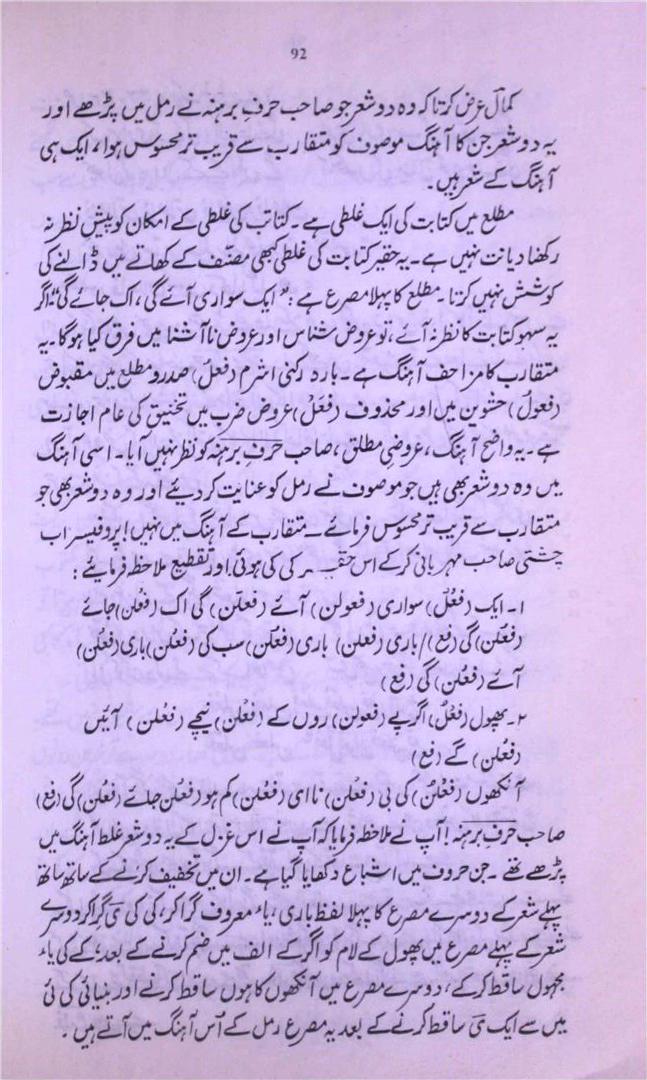 92
کمال عرض کرتا کہ وہ دو شعر جو صاحب حرفِ برہنہ نے رمل میں پڑھے اور
یہ دو شعر جن کا آہنگ موصوف کو متقارب سے قریب تر محسوس ہوا، ایک ہی
آہنگ کے شعر ہیں۔
مطلع میں کتابت کی ایک غلطی ہے۔ کتابت کی غلطی کے امکان کو پیشِ نظر نہ
رکھنا دیانت نہیں ہے۔ یہ حقیر کتابت کی غلطی کبھی مصنّف کے کھاتے میں ڈالنے کی
کوشش نہیں کرتا۔ مطلع کا پہلا مصرع ہے: "ایک سواری آئے گی، اک جائے گی" اگر
یہ سہوِ کتابت کا نظر نہ آئے، تو عروض شناس اور عروض ناآشنا میں فرق کیا ہوگا۔ یہ
متقارب کا مزاحف آہنگ ہے۔ بارہ رکنی اثرم (فعلُ) صدر و مطلع میں مقبوض
(فعولُ) حشوین میں اور محذوف (فَعَلْ) عروض ضرب میں تخنیق کی عام اجازت
ہے۔ یہ واضح آہنگ، عروضیِ مطلق، صاحب حرفِ برہنہ کو نظر نہیں آیا۔ اسی آہنگ
میں وہ دو شعر بھی ہیں جو موصوف نے رمل کو عنایت کر دیئے اور وہ دو شعر بھی جو
متقارب سے قریب تر محسوس فرمائے۔ متقارب کے آہنگ میں نہیں! پروفیسر اب
چشتی صاحب مہربانی کرکے اس حقیر کی کی ہوئی اور تقطیع ملاحظہ فرمایئے:
۱۔ ایک (فعْلُ) سواری (فعولن) آئے (فعلن) گی اک (فعْلن) جائے
(فعْلن) گی (فع) / باری (فعلن) باری (فعْلن) سب کی (فعْلن) باری (فعْلن)
آئے (فعْلن) گی (فع)
۲۔ پھول (فعْلُ) اگر پے (فعولن) روں کے (فعْلن) نیچے (فعْلن) آئیں
(فعْلن) گے (فع)
آنکھوں (فعْلن) کی بی (فعْلن) نا ای (فعْلن) کم ہو (فعْلن) جائے (فعْلن) گی (فع)
صاحب حرفِ برہنہ! آپ نے ملاحظہ فرمایا کہ آپ نے اس غزل کے یہ دو شعر غلط آہنگ میں
پڑھے تھے۔ جن حروف میں اشباع دکھایا گیا ہے۔ ان میں تخفیف کرنے کے ساتھ ساتھ
پہلے شعر کے دوسرے مصرع کا پہلا لفظ باری، یاء معروف گرا کر، کی کی ی گرا کر دوسرے
شعر کے پہلے مصرع میں پھول کے لام کو اگر کے الف میں ضم کرنے کے بعد، کے کی یاء
مجہول ساقط کرکے، دوسرے مصرع میں آنکھوں کا ہوں ساقط کرنے اور بنیائی کی ئی
میں سے ایک ی ساقط کرنے کے بعد یہ مصرع رمل کے اُس آہنگ میں آتے ہیں۔